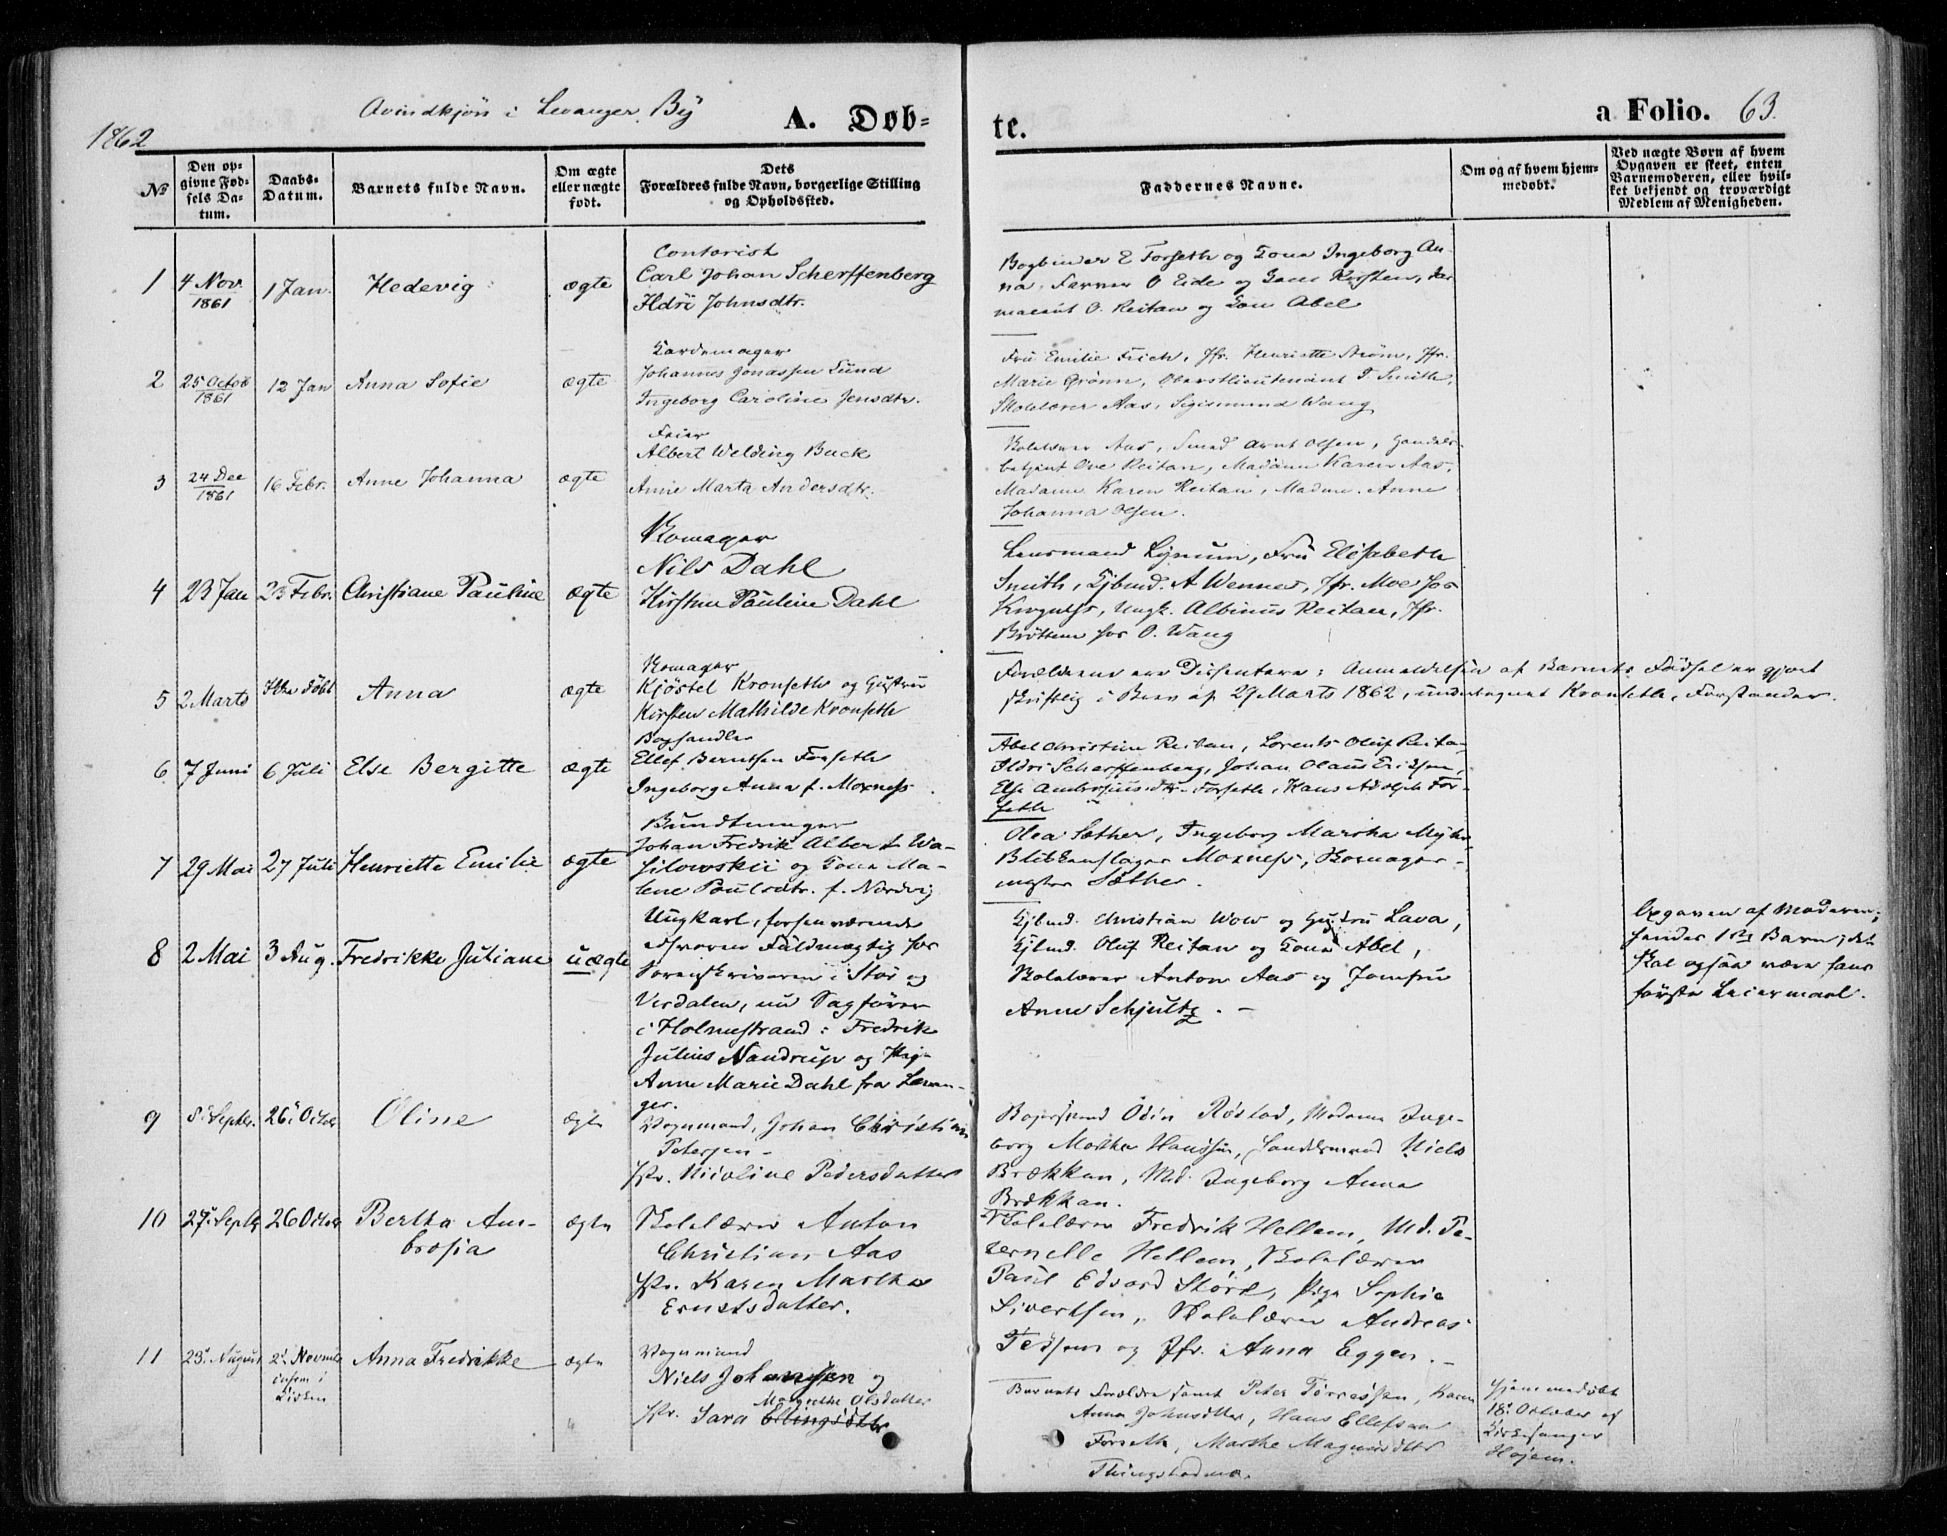 1862
Qvindkjøn i Levanger By
A. Døb=
te.
a Folio. 63.
No
Den op=
givne Fød=
sels Da=
tum.
Daabs=
Datum.
Barnets fulde Navn.
Om ægte
eller uægte
født.
Dets
Forældres fulde Navn, borgerlige Stilling
og Opholdssted.
Faddernes Navne.
Om og af hvem hjem=
medøbt.
Ved uægte Børn af hvem
Opgaven er skeet, enten
Barnemoderen, eller hvil=
ket bekjendt og troværdigt
Medlem af Menigheden.
1
4 Nov.
1861
1 Jan.
Hedevig
ægte
Contorist
Carl Johan Scherffenberg
Ildri Johnsdtr.
Bogbinder E Forseth og Kona Ingeborg An-
na, Farver O Eide og Kone Kirsten,
O. Reitan og Kon Abel
2
25 Octob
1861
12 Jan
Anna Sofie
ægte
Kardemager
Johannes Jonassen Lund
Ingeborg Caroline Jensdtr.
Fru Emilie Frich, Jfr. Henriette Strøm, Jfr.
Marie Grønn, Oberstlieutenant T. Smith,
Skolelærer Aas, Sigismund Wang
3
24 Dec
1861
16 Febr.
Anne Johanna
ægte
Feier
Albert Welding Buck
Anne Marta Andersdtr.
Skolelærer Aas, Smed Arnt Olsen, Handels-
betjent Ove Reitan, Madame Karen Aas,
Madame Karen Reitan, Madme. Anne
Johanna Olsen.
4
23 Jan
23 Febr.
Christiane Pauline
ægte
Skomager
Nils Dahl
Kirsten Pauline Dahl
Lensmand Lynum, Fru Elisabeth
Smith, Kjbmd. A Wennes, Jfr. Moe hos
Ungk. Albinus Reitan, Jfr.
Brøttem hos O. Wang
5
2 Marts
Ikke døbt
Anna
ægte
Skomager
Kjøstel Kronseth og Hustru
Kirsten Mathilde Kronseth
Forældrene ere Dissentere; Anmeldelsen af Barnets Fødsel er gjort
skriftlig i Brev af 29 Marts 1862, undertegnet Kronseth, Forstander.
6
7 Juni
6 Juli
Else Bergitte
ægte
Boghandler
Ellef Berntsen Forseth
Ingeborg Anna f. Moxness.
Abel Christine Reitan, Lorents Oluf Reitan
Ildri Scherffenberg, Johan Olaus Eriksen,
Else Ambrosiusdtr. Forseth, Hans Adolph For-
seth
7
29 Mai
27 Juli
Henriette Emilie
ægte
Bundtmager
Johan Fredrik Albert Wa-
silowskii og Kona Ma-
lene Poulsdtr. f. Nordvig
Olea Sæther, Ingeborg Martha Myhr
Blikkenslager Moxness, Skomager-
mester Sæther.
8
2 Mai
3 Aug.
Fredrikke Juliane
uægte
Ungkarl, forhenværende
Fuldmægtig hos
Sorenskriveren i Stør og
Verdalen, nu Sagfører
i Holmestrand: Fredrik
Julius Nandrup og Pige
Anne Marie Dahl fra Levan-
ger.
Kjbmd. Christian Wow og Hustru Lava,
Kjbmd. Oluf Reitan og Kone Abel,
Skolelærer Anton Aas og Jomfru
Anne Schjultz. -
Opgaven af Moderen;
hendes 1ste Barn; det
skal ogsaa være hans
første Leiermaal.
9
5' Septbr.
26' Octobr
Oline
ægte
Vognmand, Johan Christian
Petersen -
Nicoline Pedersdatter
Odin Røstad, Madame Inge-
borg Martha Hanssen, Handelsmand Niels
Brækkan, Md. Ingeborg Anna
Brækkan.
10
27' Septbr
26 Octobr
Bertha Am-
brosia
ægte
Skolelærer Anton
Christian Aas
Karen Martha
Ernstsdatter.
Skolelærer Fredrik Hellem, Md. Pe-
ternelle Hellem, Skolelærer
Paul Edvard Størk, Pige Sophie
Sivertsen, Skolelærer Andreas
og Jfr. Anna Eggen. -
11
23' August
2' Novmbr
i
Kirken
Anna Fredrikke
ægte
Vognmand
Niels Johansen og
Margrethe Olsdatter
Sara Ellingsdtr
Barnets Forældre samt Peter Tørressen, Karen
Anna Johnsdtter, Hans Ellefsen
Forseth, Marthe Magnusdtter
Thingstadmo.
Hjemmedøbt
18' October af
Kirkesanger
Højem.